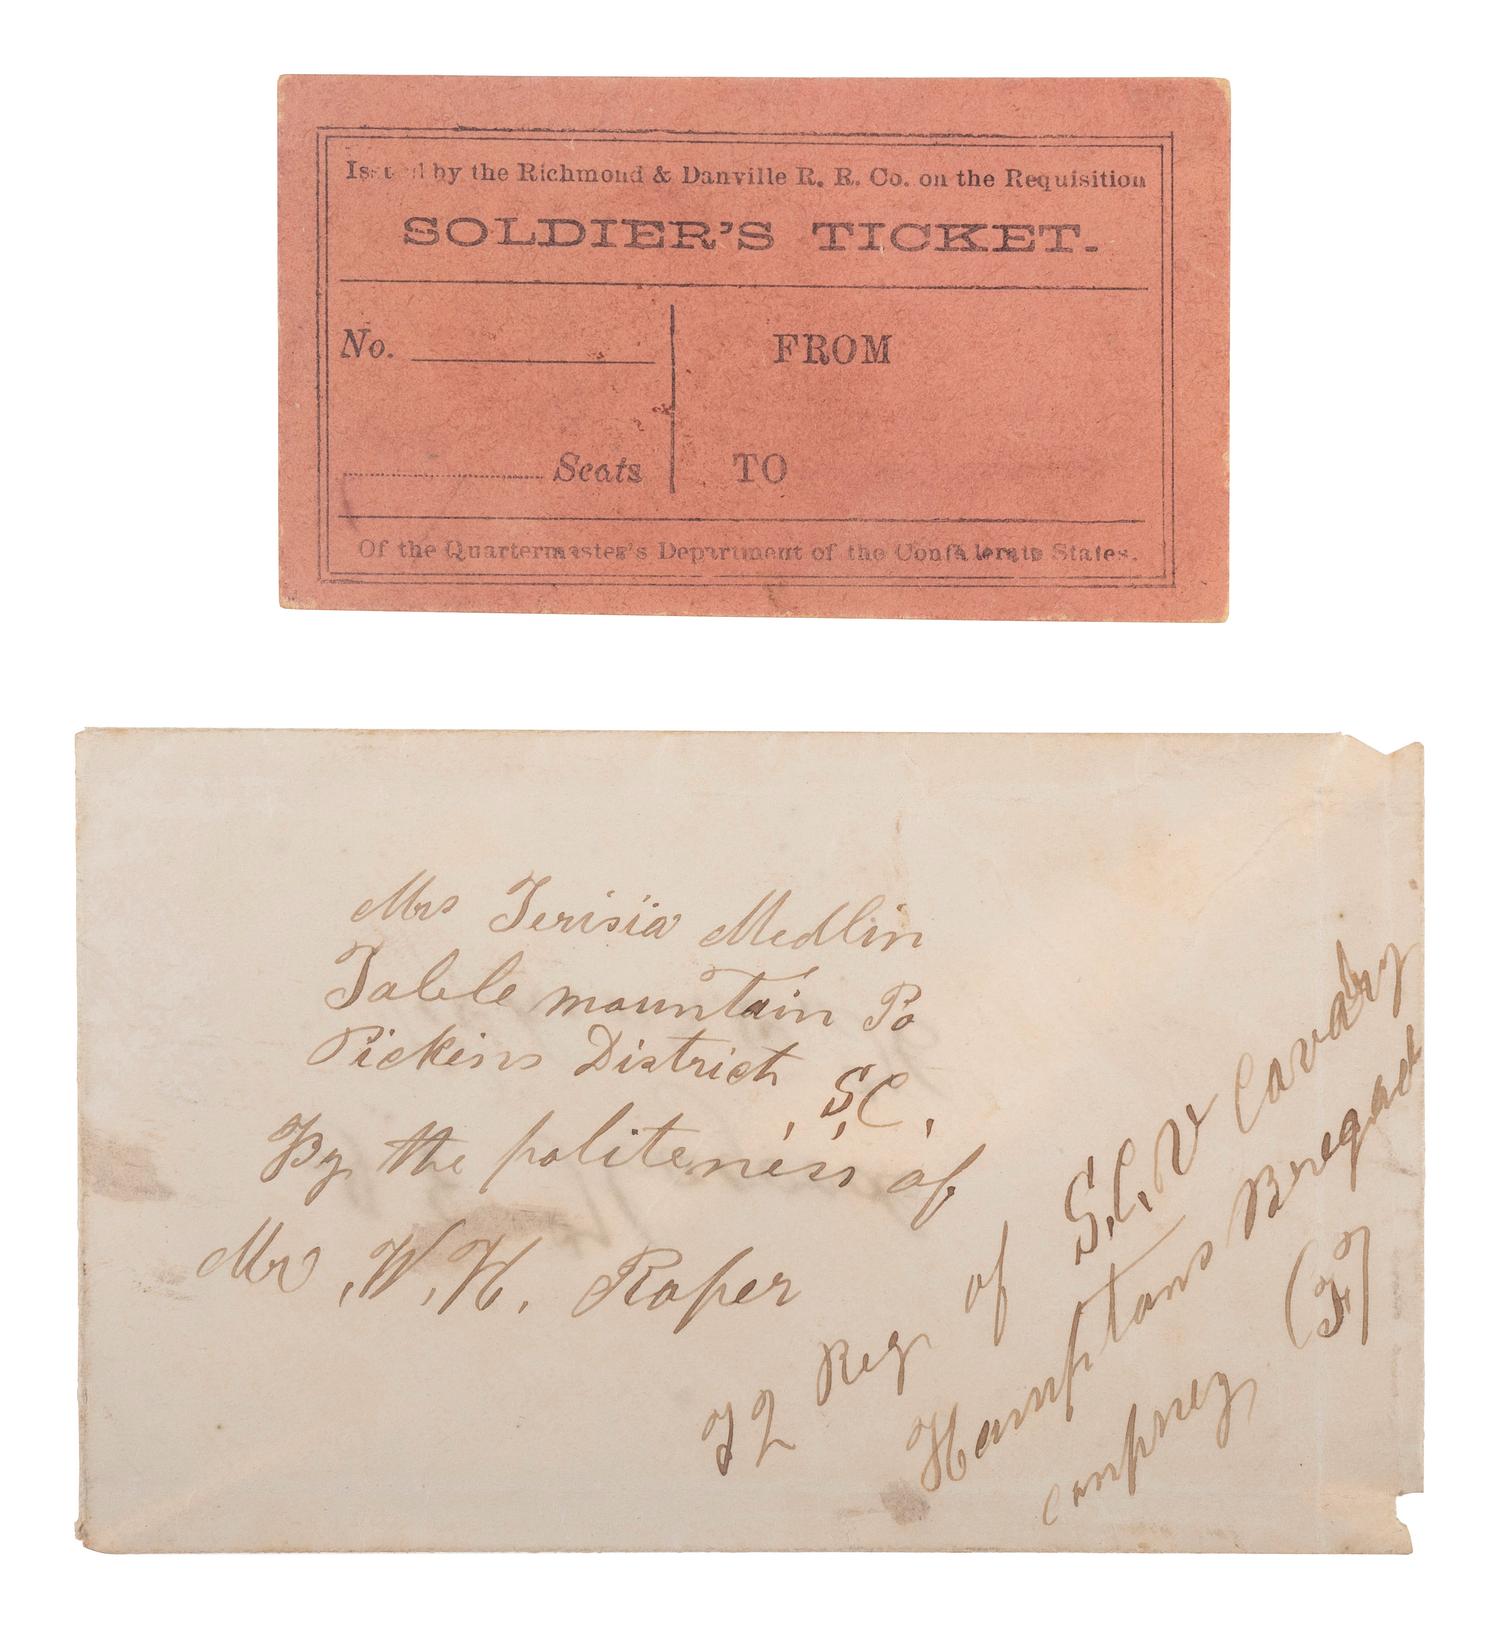 Issued by the Richmond & Danville R. R. Co. on the Requisition
SOLDIER'S TICKET.
No.
Seats
FROM
TO
Of the Quartermaster's Department of the Confederate States.
Mrs Terisia Medlin
Table mountain Po
Pickins District, S,C,
By the politeness of
Mr, W, H, Roper
Reg of S.C. V Cavalry
Hamptons Bregade
compney (F)